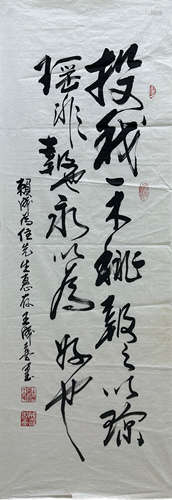 投我以木桃報之以瓊
瑶非報也永以為好也
先生惠存王成喜